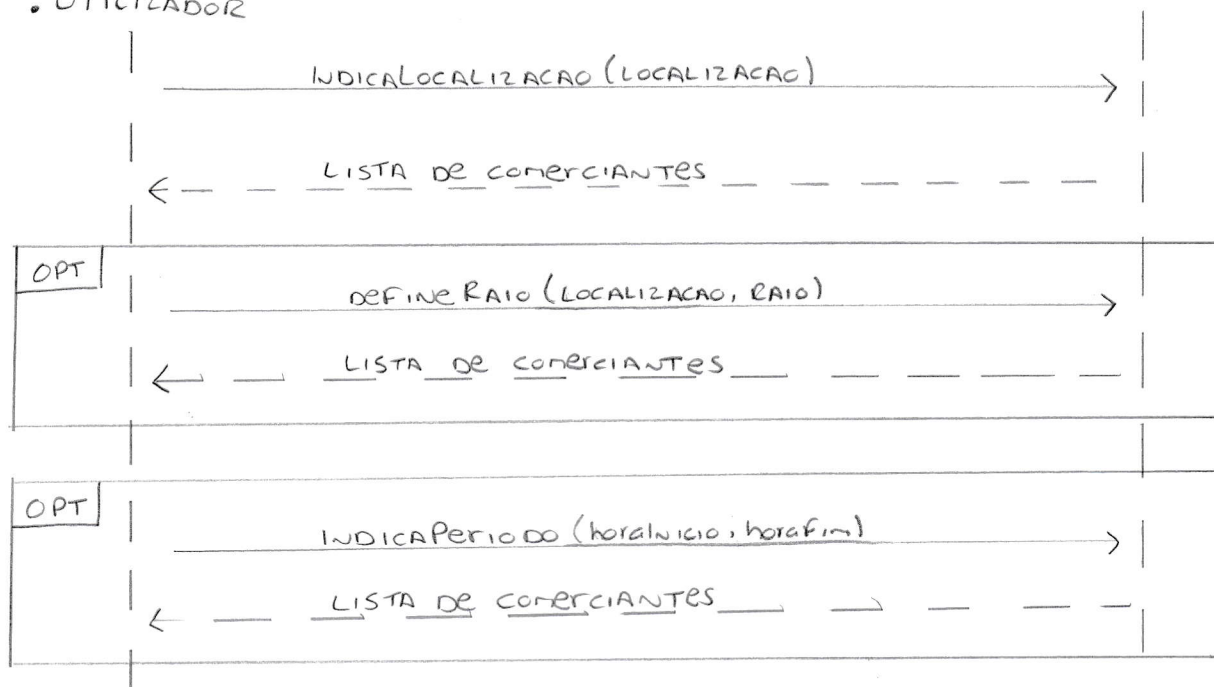 : UTILIZADOR
INDICALOCALIZACAO (LOCALIZACAO)
LISTA DE COMERCIANTES
OPT
DEFINE RAIO (LOCALIZACAO, RAIO)
LISTA DE COMERCIANTES
OPT
INDICAPERIODO (horaINICIO, horaFim)
LISTA DE COMERCIANTES